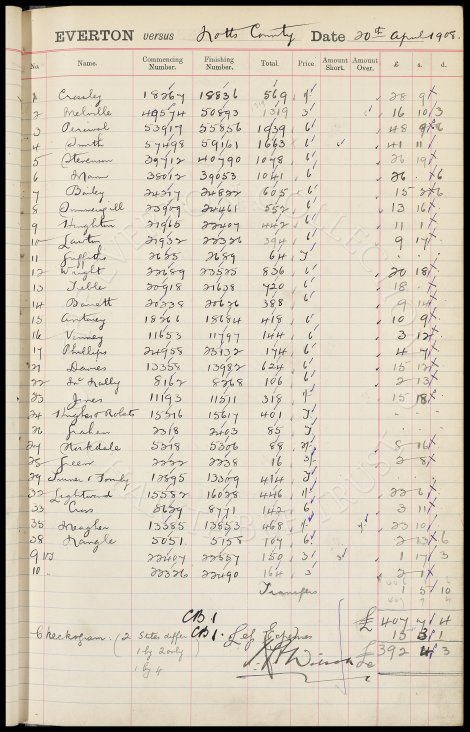 EVERTON versus Notts County Date 20th April 1908.
No. Name. Commencing Number. Finishing Number. Total. Price. Amount Short. Amount Over. £ s. d.
1 Crosley 18267 18836 569 1/- 28 9
2 Melville 49574 50893 1319 3 16 10 3
3 Percival 53917 55856 1939 6 48 9 6
4 Smith 57498 59161 1663 6 41 11
5 Stevenson 39712 40790 1078 6 26 19
6 Mann 38012 39053 1041 6 26 . 6
7 Bailey 24217 24822 605 6 15 2 6
8 Summergill 23909 24461 552 6 13 16
9 Houghton 21965 22407 442 6 11 1
10 Lawton 21932 22326 394 6 9 17
11 Griffiths 2625 2689 64
12 Wright 22689 23525 836 6 20 18
13 Treble 20918 21638 720 6 18 .
14 Barnett 20238 20626 388 6 9 14
15 18266 18684 418 6 10 9
16 Vinney 11653 11797 144 6 3 12
17 Phillips 24958 25132 174 6 4 7
21 Davies 13358 13982 624 6 15 12
22 McNally 8162 8268 106 6 2 13
23 Jones 11193 11511 318 1/- 15 18
24 Hughes & Roberts 15216 15617 401
26 Graham 2318 2403 85
27 Stockdale 5218 5306 88 2/- 8 16
28 Green 2222 2238 16 3/- 2 8
29 12895 13309 414
32 Lightwood 15582 16028 446 1/- 22 6
33 Cross 8629 8771 142 6 3 11
35 Meagher 13385 13853 468 1/- 23 10
38 Nangle 5051 5158 107 6 2 13 6
9 22407 22557 150 3 1 17 3
10 22326 22490 164 3 2 1
Transfers 1 5 10
CB1 £ 407 7 4
Checkogram. (2 Sets diffce CB1. Less Expenses 15 3 1
1 by 2 only £ 392 4 3
1 by 4